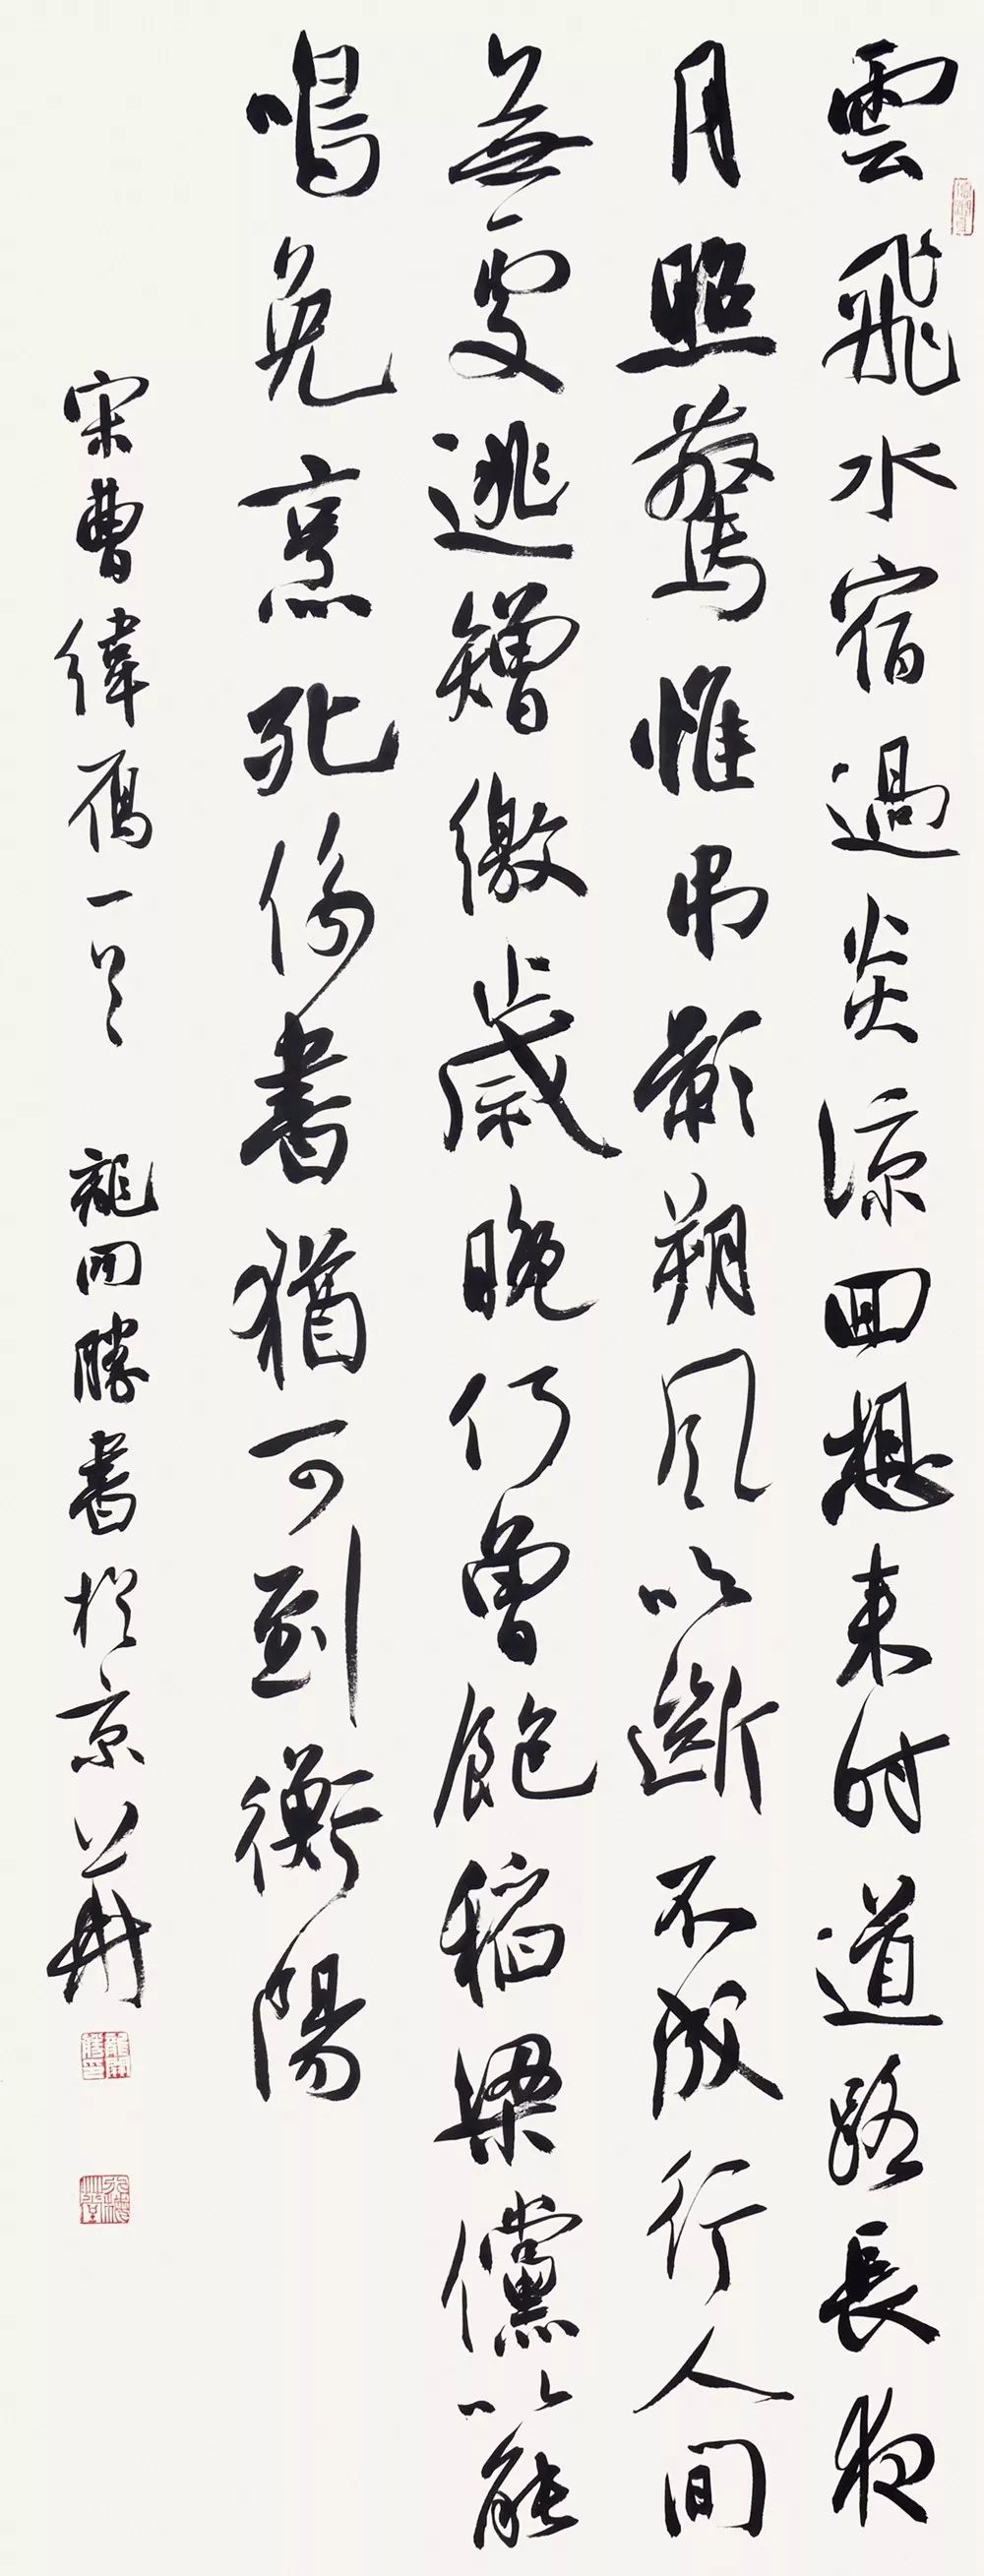 雲飛水宿過炎涼回想来时道路長夜
月照驚惟弔影朔風吹斷不成行人間
無處逃矰繳歲晚何曾飽稻粱儻以能
鳴免烹死傳書猶可到衡陽
宋曹緯雁一首 龍開勝書於京華